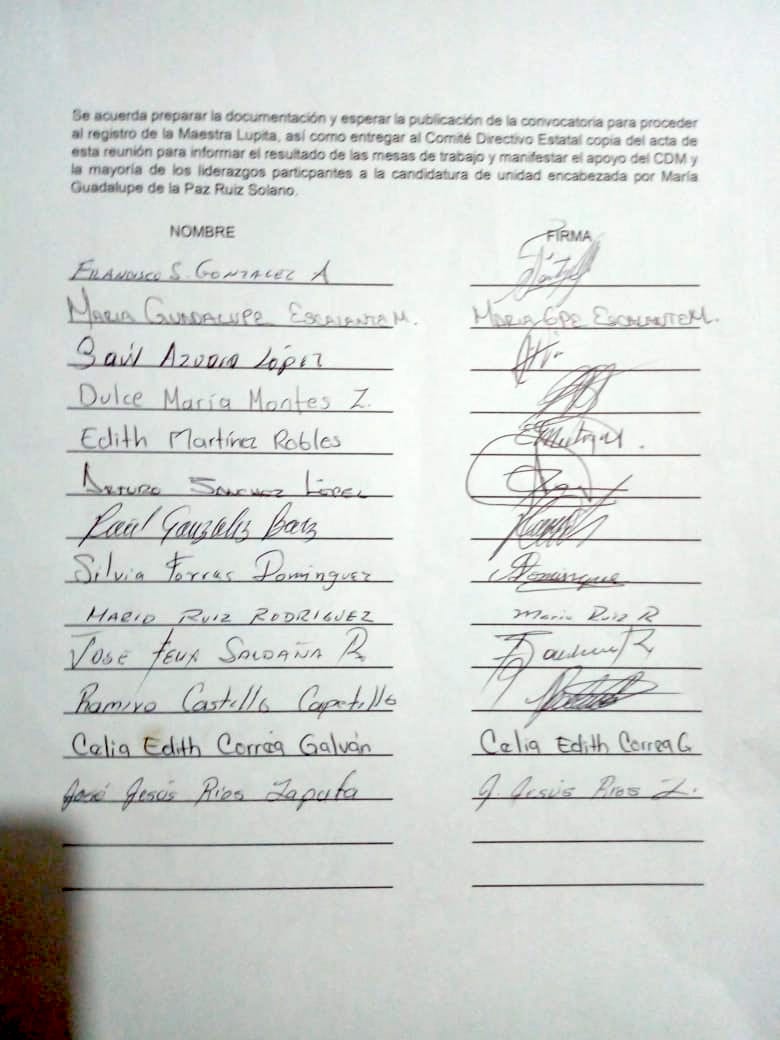 Se acuerda preparar la documentación y esperar la publicación de la convocatoria para proceder
al registro de la Maestra Lupita, así como entregar al Comité Directivo Estatal copia del acta de
esta reunión para informar el resultado de las mesas de trabajo y manifestar el apoyo del CDM y
la mayoría de los liderazgos particpantes a la candidatura de unidad encabezada por María
Guadalupe de la Paz Ruiz Solano.
NOMBRE FIRMA
FRANCISCO S. GONZALEZ A
MARIA GUADALUPE ESCALANTE M. MARIA GPE ESCALANTE M.
Saúl Azuara López
Dulce María Montes Z.
Edith Martínez Robles
ARTURO SANCHEZ LÓPEZ
Raúl González Baez
Silvia Torres Dominguez
MARIO RUIZ RODRIGUEZ Mario Ruiz R
JOSE FELIX SALDAÑA R.
Ramiro Castillo Capetillo
Celia Edith Correa Galván Celia Edith Correa G
José Jesús Rios Zapata J. Jesús Rios Z.